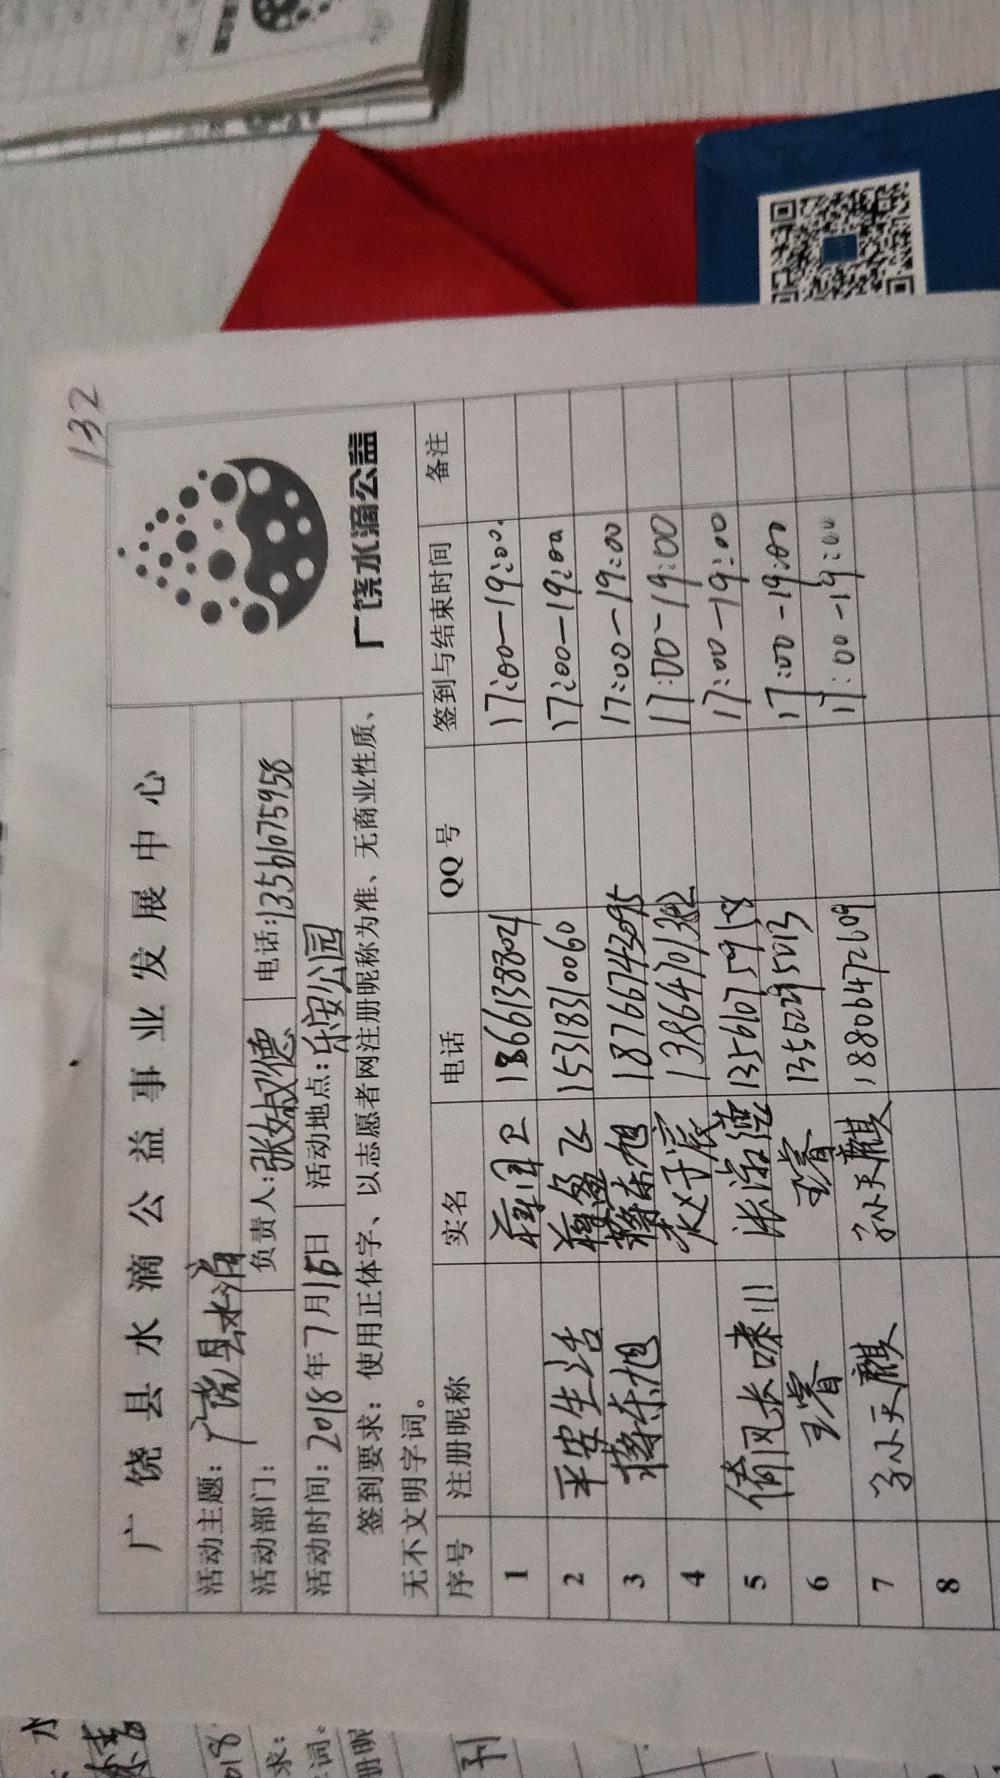 132
广饶县水滴公益事业发展中心
广饶水滴公益
活动主题：广饶县水滴
活动部门： 负责人：张淑德 电话：13561075958
活动时间：2018年7月15日 活动地点：乐安公园
签到要求：使用正体字、以志愿者网注册昵称为准、无商业性质、
无不文明字词。
序号 注册昵称 实名 电话 QQ号 签到与结束时间 备注
1 蒋国卫 18661388021 17:00-19:00
2 平安生活 15318310060 17:00-19:00
3 蒋东旭 蒋东旭 18766743095 17:00-19:00
4 17:00-19:00
5 倚风长啸川 张淑德 13561075958 17:00-19:00
6 王睿 王睿 17:00-19:00
7 孙天麒 孙天麒 18806472609 17:00-19:00
8